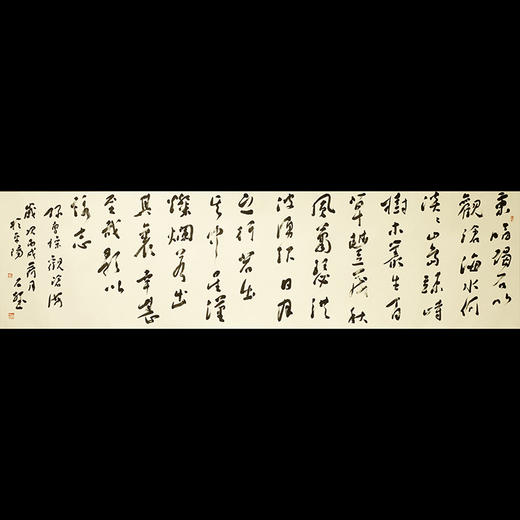 東臨碣石以
觀滄海水何
淡淡山島竦峙
樹木叢生百
草豐茂秋
風蕭瑟洪
波湧起日月
之行若出
其中星漢
燦爛若出
其裏幸甚
至哉歌以
詠志
曹操觀滄海
歲次丙戌荷月
於平陽